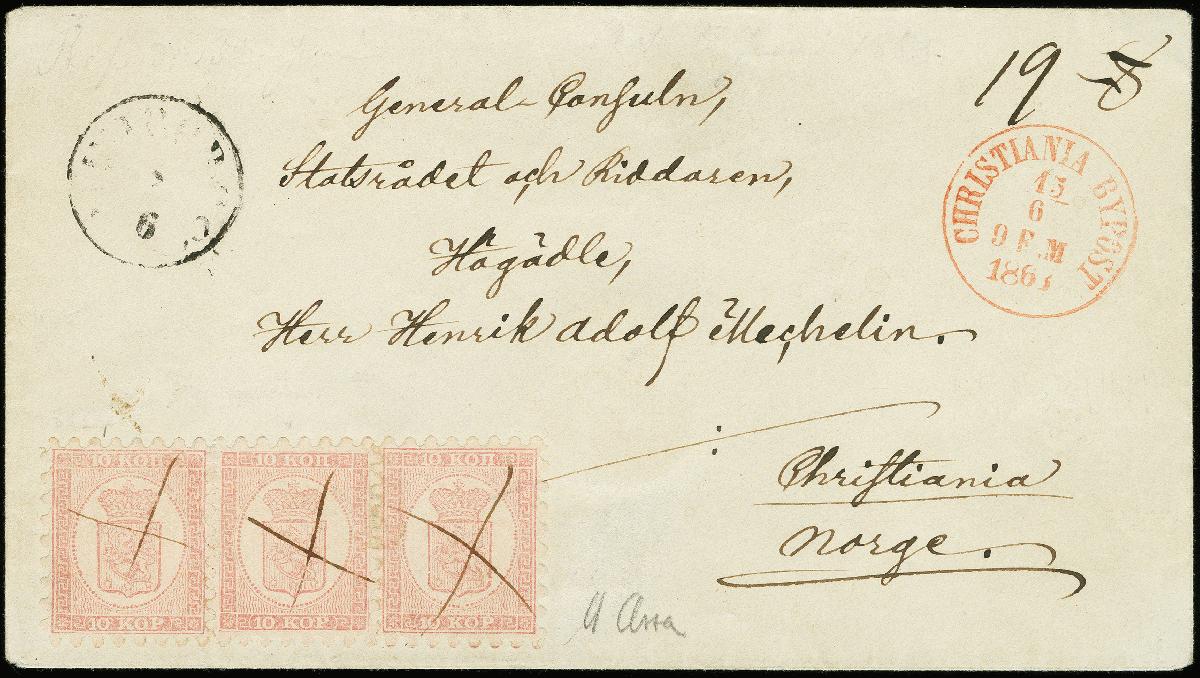 19
General-Consuln,
Statsrådet och Riddaren,
Högädle,
Herr Henrik Adolf Mechelin.
Christiania
Norge.
CHRISTIANIA BYPOST
15
6
9 F.M
1863
6
10 КОП
10 KOP
10 КОП
10 KOP
10 КОП
10 KOP